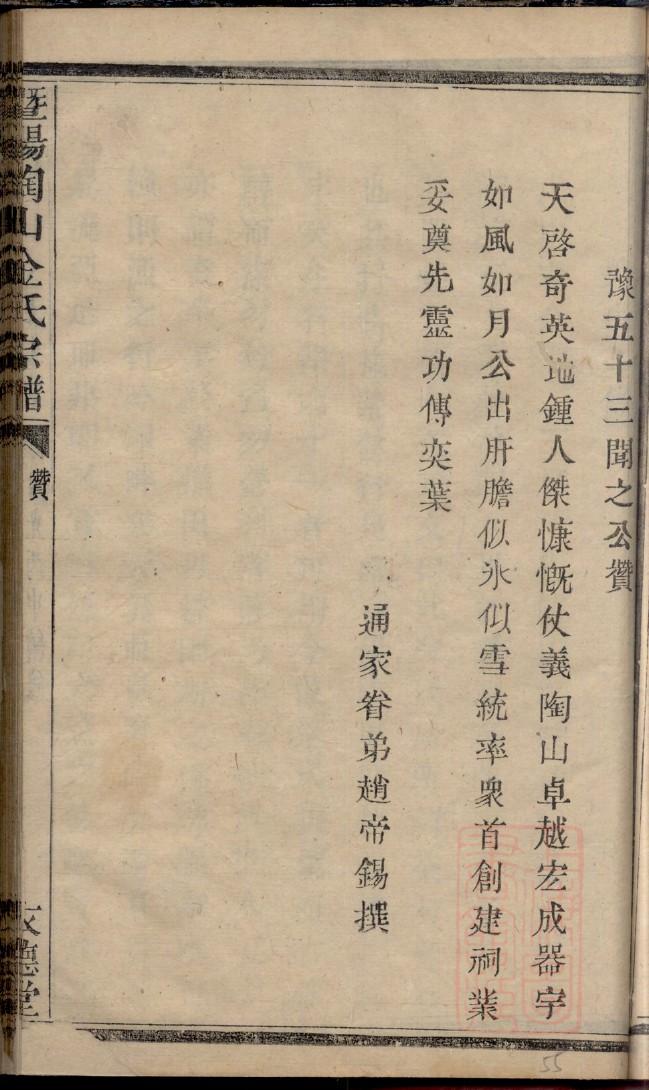 豫五十三聞之公贊
天啓奇英地鍾人傑慷慨仗義陶山卓越宏成器宇
如風如月公出肝膽似氷似雪統率衆首創建祠業
妥奠先靈功傳奕葉
通家眷弟趙帝錫撰
暨陽陶山金氏宗譜
贊
文德堂
55